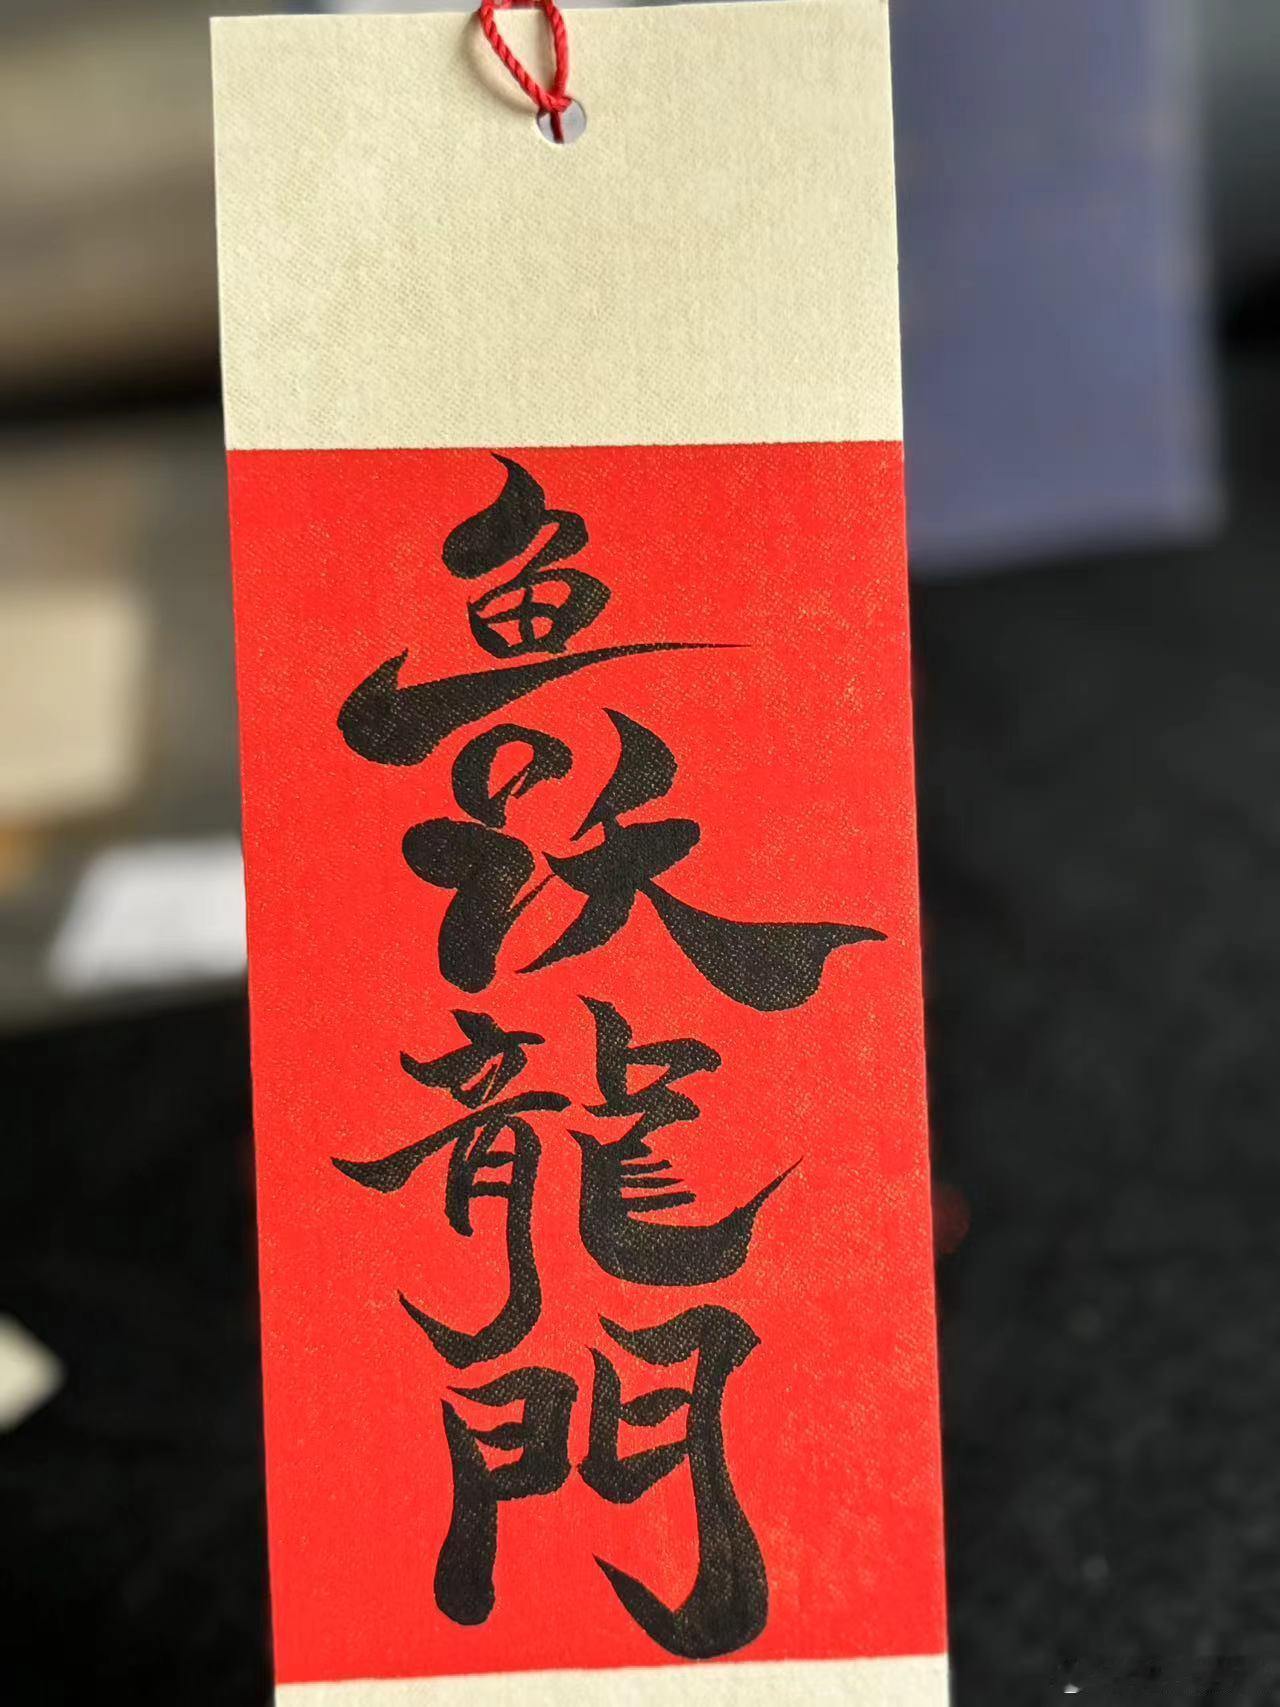 鱼跃龍門